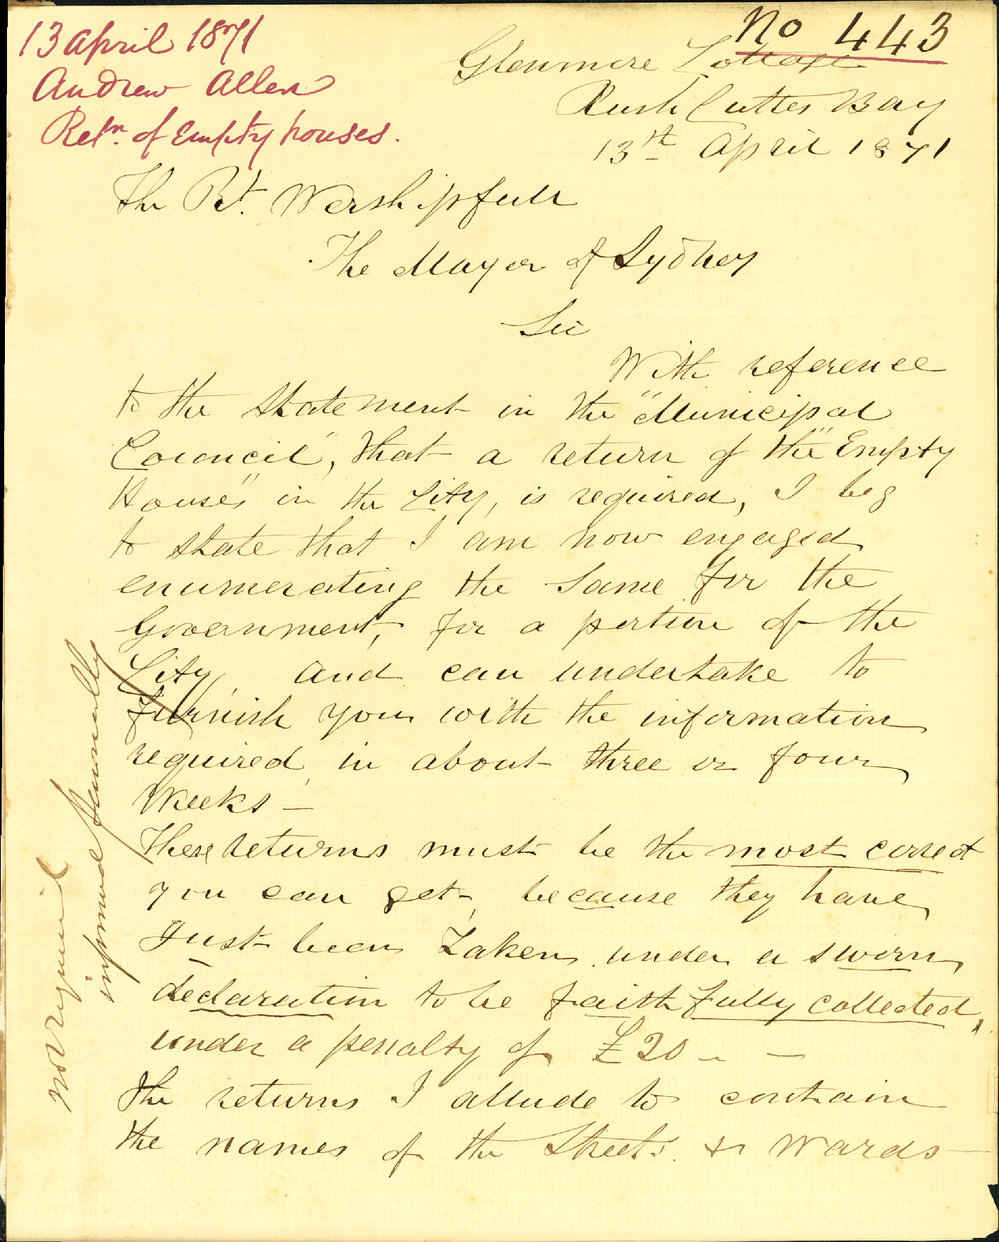 13 April 1871
Andrew Allen
Retn. of Empty houses.
No 443
Glenmore Cottage
Rush Cutter Bay
13th April 1871
The Rt. Worshipfull
The Mayor of Sydney
Sir
With reference
to the statement in the "Municipal
Council", that a return of the "Empty
Houses" in the City, is required, I beg
to state that I am now engaged
enumerating the same for the
Government, for a portion of the
City, and can undertake to
furnish you with the information
required, in about three or four
Weeks —
These returns must be the most correct
you can get, because they have
Just been Taken under a sworn
declaration to be faithfully collected,
under a penalty of £20 — —
The returns I allude to contain
the names of the Streets & Wards —
not required
informed personally